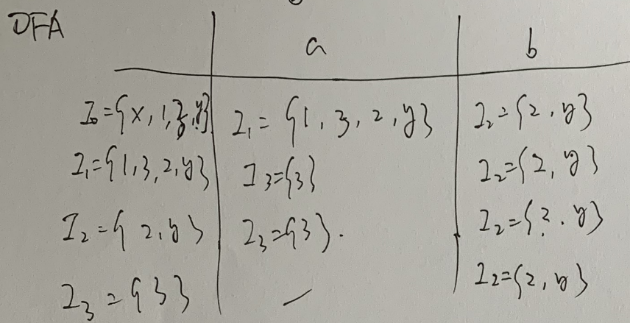 DFA
a b
I₀={x,1,3,y} I₁={1,3,2,y} I₂={2,y}
I₁={1,3,2,y} I₃={3} I₂={2,y}
I₂={2,y} I₃={3}. I₂={2,y}
I₃={3} — I₂={2,y}